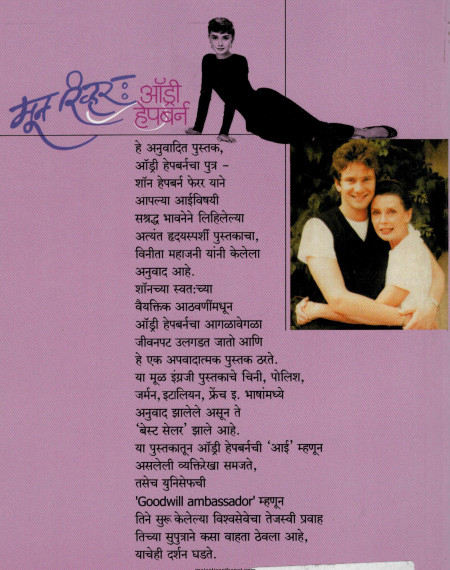 मून रिव्हर :
ऑड्री
हेपबर्न
हे अनुवादित पुस्तक,
ऑड्री हेपबर्नचा पुत्र –
शॉन हेपबर्न फेरर याने
आपल्या आईविषयी
सश्रद्ध भावनेने लिहिलेल्या
अत्यंत हृदयस्पर्शी पुस्तकाचा,
विनीता महाजनी यांनी केलेला
अनुवाद आहे.
शॉनच्या स्वत:च्या
वैयक्तिक आठवणींमधून
ऑड्री हेपबर्नचा आगळावेगळा
जीवनपट उलगडत जातो आणि
हे एक अपवादात्मक पुस्तक ठरते.
या मूळ इंग्रजी पुस्तकाचे चिनी, पोलिश,
जर्मन, इटालियन, फ्रेंच इ. भाषांमध्ये
अनुवाद झालेले असून ते
'बेस्ट सेलर' झाले आहे.
या पुस्तकातून ऑड्री हेपबर्नची 'आई' म्हणून
असलेली व्यक्तिरेखा समजते,
तसेच युनिसेफची
'Goodwill ambassador' म्हणून
तिने सुरू केलेल्या विश्वसेवेचा तेजस्वी प्रवाह
तिच्या सुपुत्राने कसा वाहता ठेवला आहे,
याचेही दर्शन घडते.